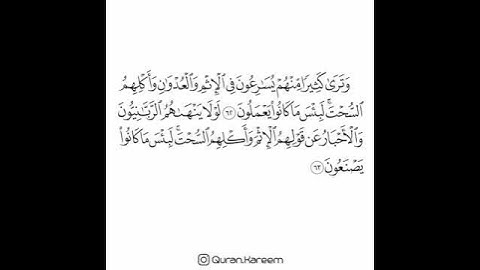 وَتَرَىٰ كَثِيرًا مِّنْهُمْ يُسَٰرِعُونَ فِي الْإِثْمِ وَالْعُدْوَٰنِ وَأَكْلِهِمُ
السُّحْتَ ۚ لَبِئْسَ مَا كَانُوا۟ يَعْمَلُونَ ٦٢ لَوْلَا يَنْهَىٰهُمُ الرَّبَّٰنِيُّونَ
وَالْأَحْبَارُ عَن قَوْلِهِمُ الْإِثْمَ وَأَكْلِهِمُ السُّحْتَ ۚ لَبِئْسَ مَا كَانُوا۟
يَصْنَعُونَ ٦٣
Quran.Kareem